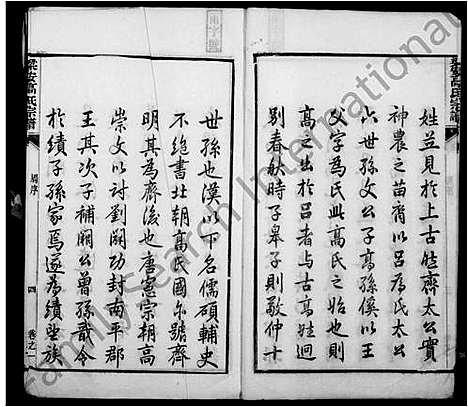 姓並見於上古能齊太公實
神農之苗裔以呂為氏太公
六世孫文公子高孫傒以王
父字為氏此高氏之始也則
高之出於呂者與古高姓迥
別春秋時子皋子則敬仲十
世孫也漢以下名儒碩輔史
不絕書北朝高氏國尔號齊
明其為齊後也唐憲宗朝高
崇文以討劉闢功封南平郡
王其次子補闕公曾孫戬令
於績子孫家焉遂為績望族
梁安高氏宗譜
舊序
四
卷之一
FamilySearch International